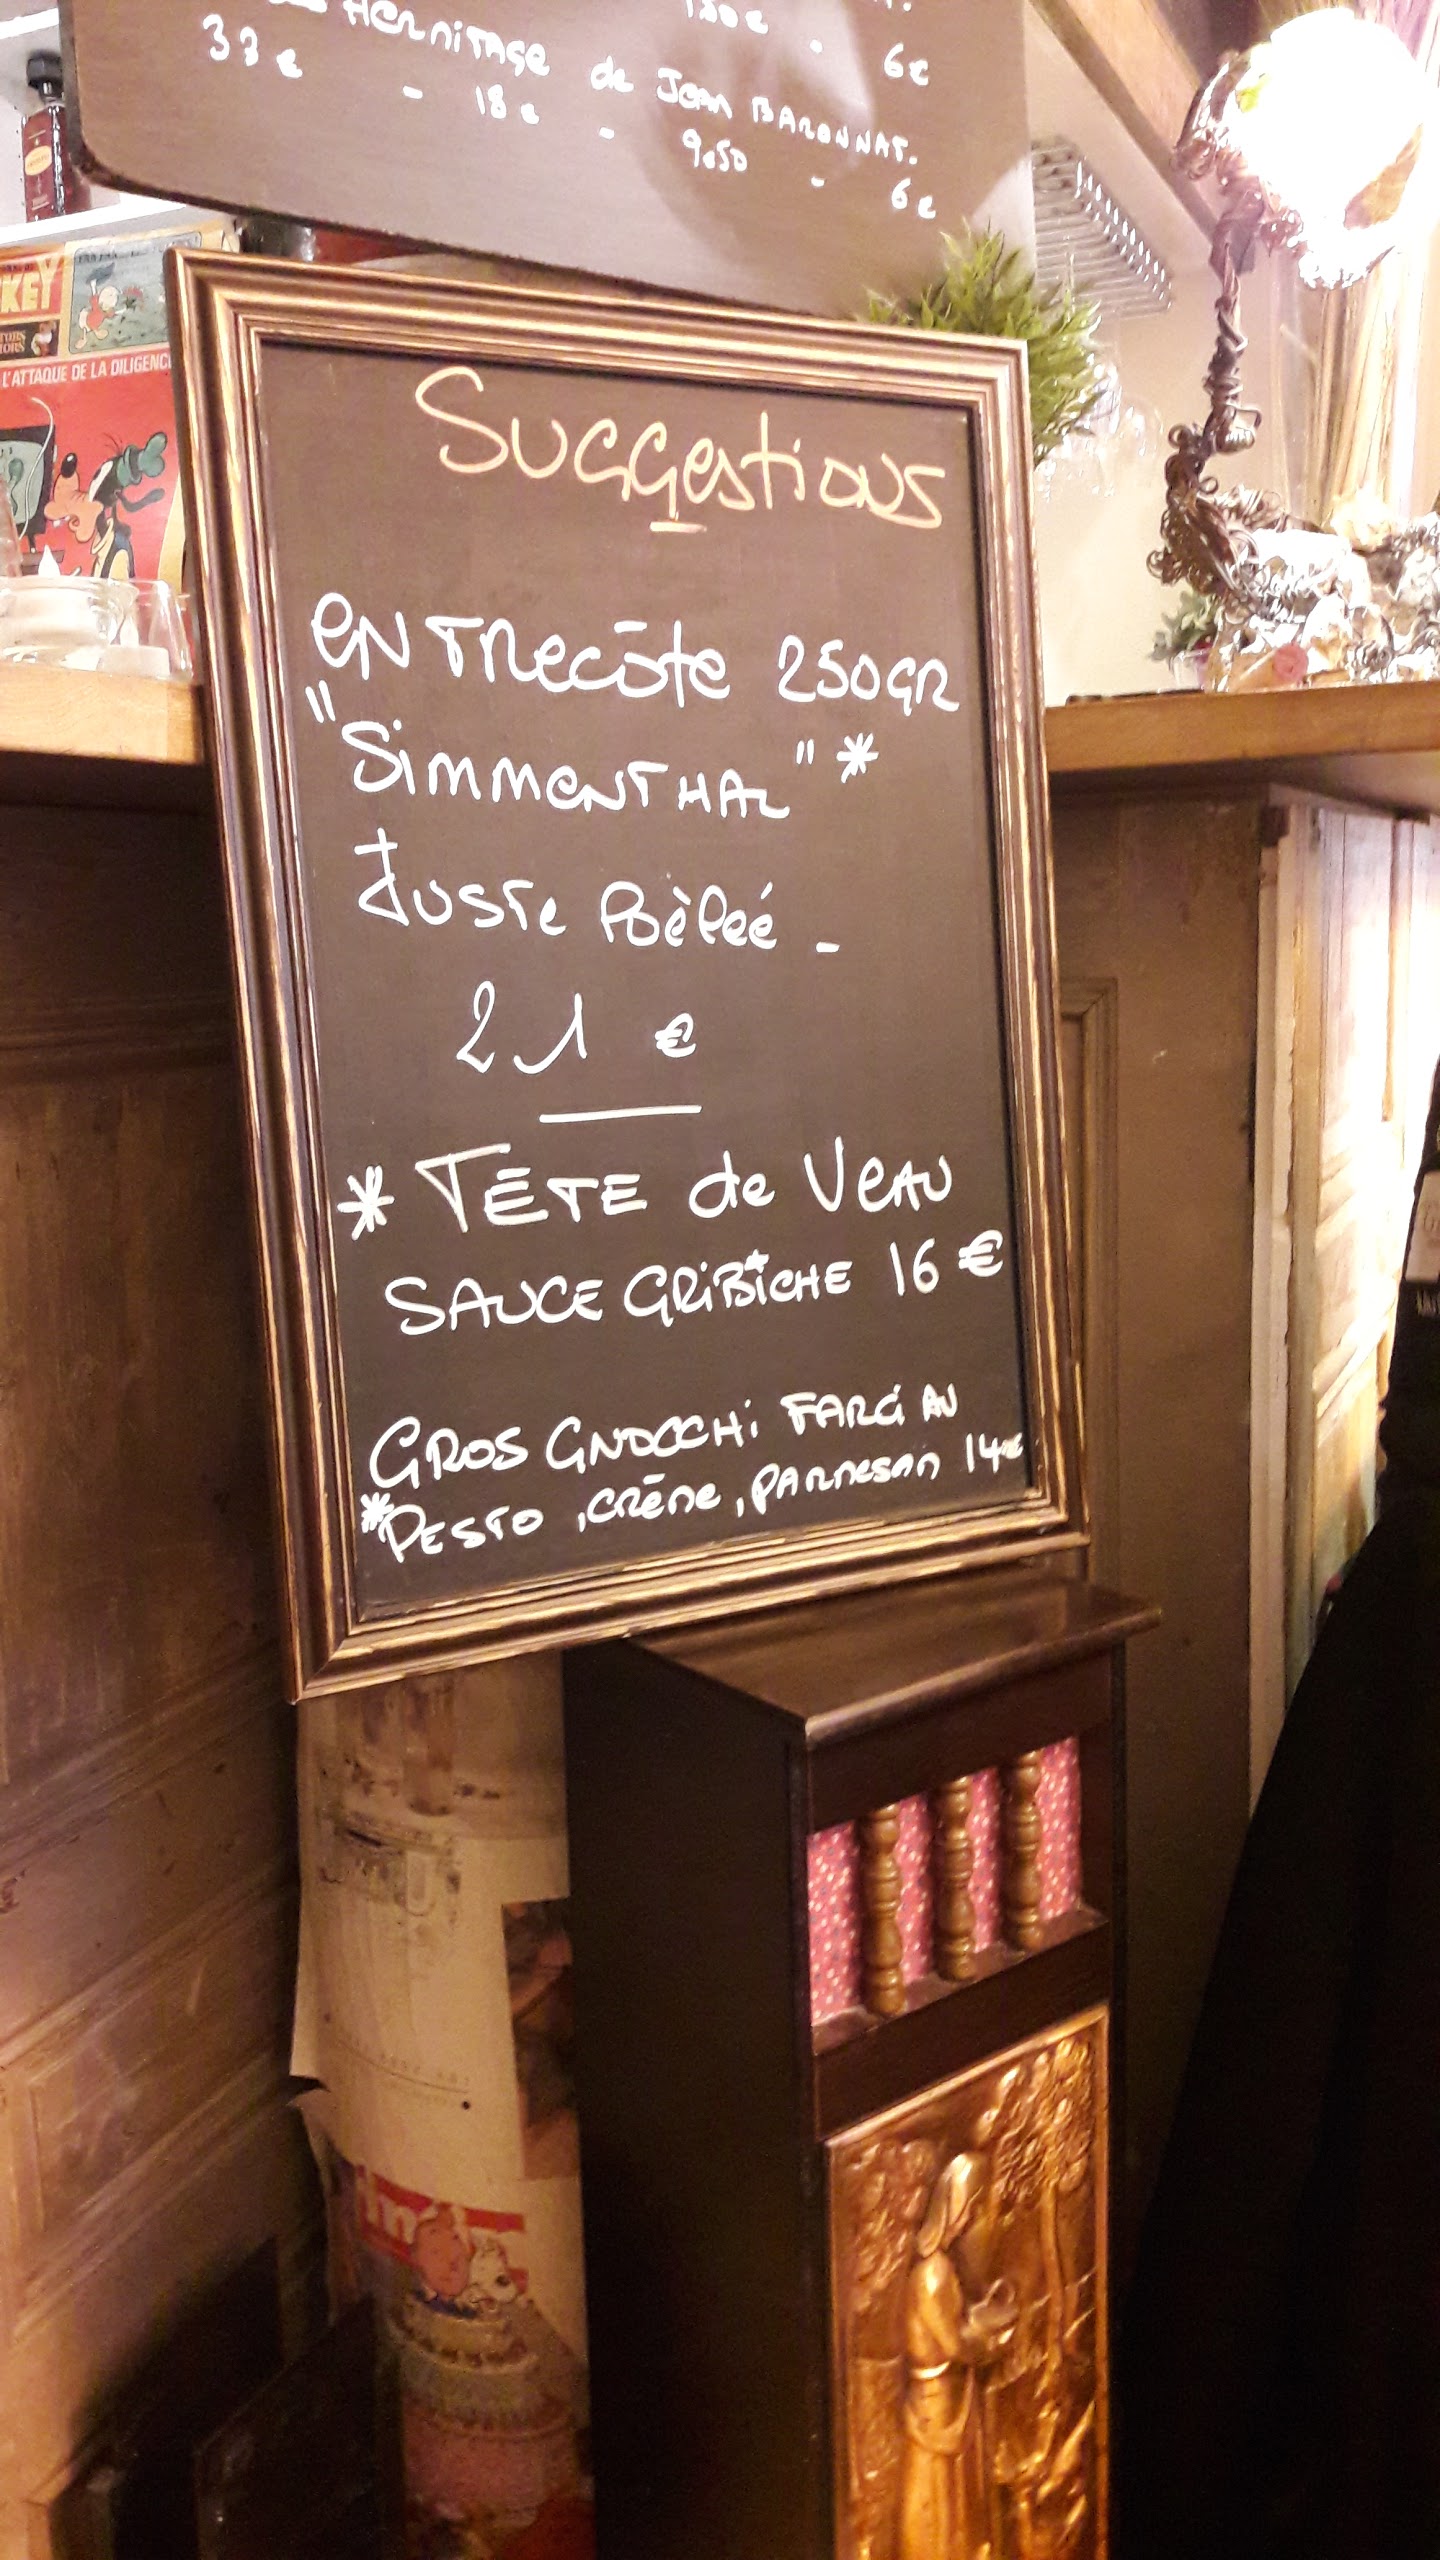 130€ - 6€
HERMITAGE de Jean BARONNAT.
33€ - 18€ - 9.50 - 6€
KEY
L'ATTAQUE DE LA DILIGENC
Suggestions
entrecôte 250gr
"Simmenthal" *
Juste Poèlée -
21 €
* TÊTE de Veau
SAUCE GRIBICHE 16 €
GROS GNOCCHi FARCi AU
*PESTO, crème, parmesan 14€